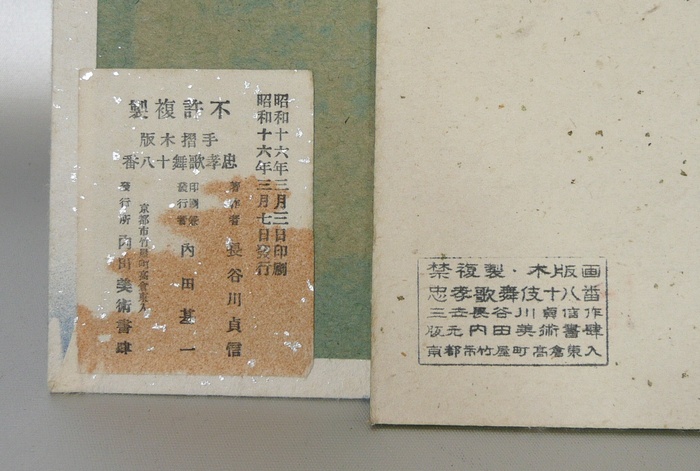 昭和十六年三月三日印刷
昭和十六年三月七日發行
不許複製
手摺木版
忠孝歌舞十八番
著作者 長谷川貞信
印刷兼
發行者 內田甚一
京都市竹屋町高倉東入
發行所 內田美術書肆
禁複製・木版画
忠孝歌舞伎十八番
三世長谷川貞信作
版元內田美術書肆
京都市竹屋町高倉東入